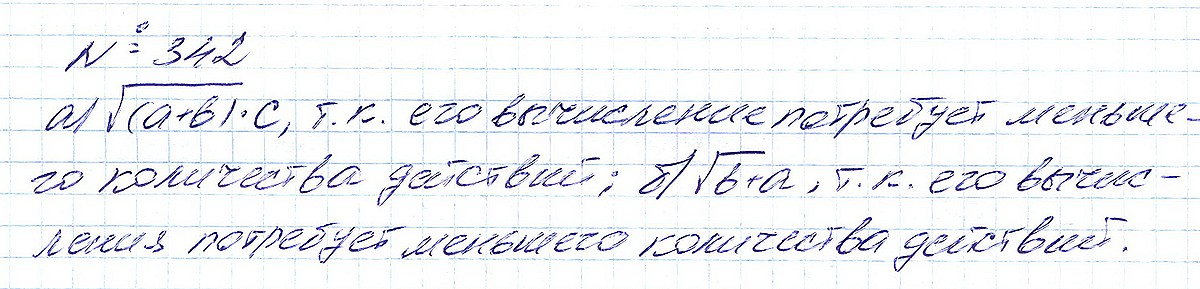 № 342
а) √(a+b)·c, т.к. его вычисление потребует меньше-
го количества действий; б) √b+a, т.к. его вычис-
ления потребует меньшего количества действий.